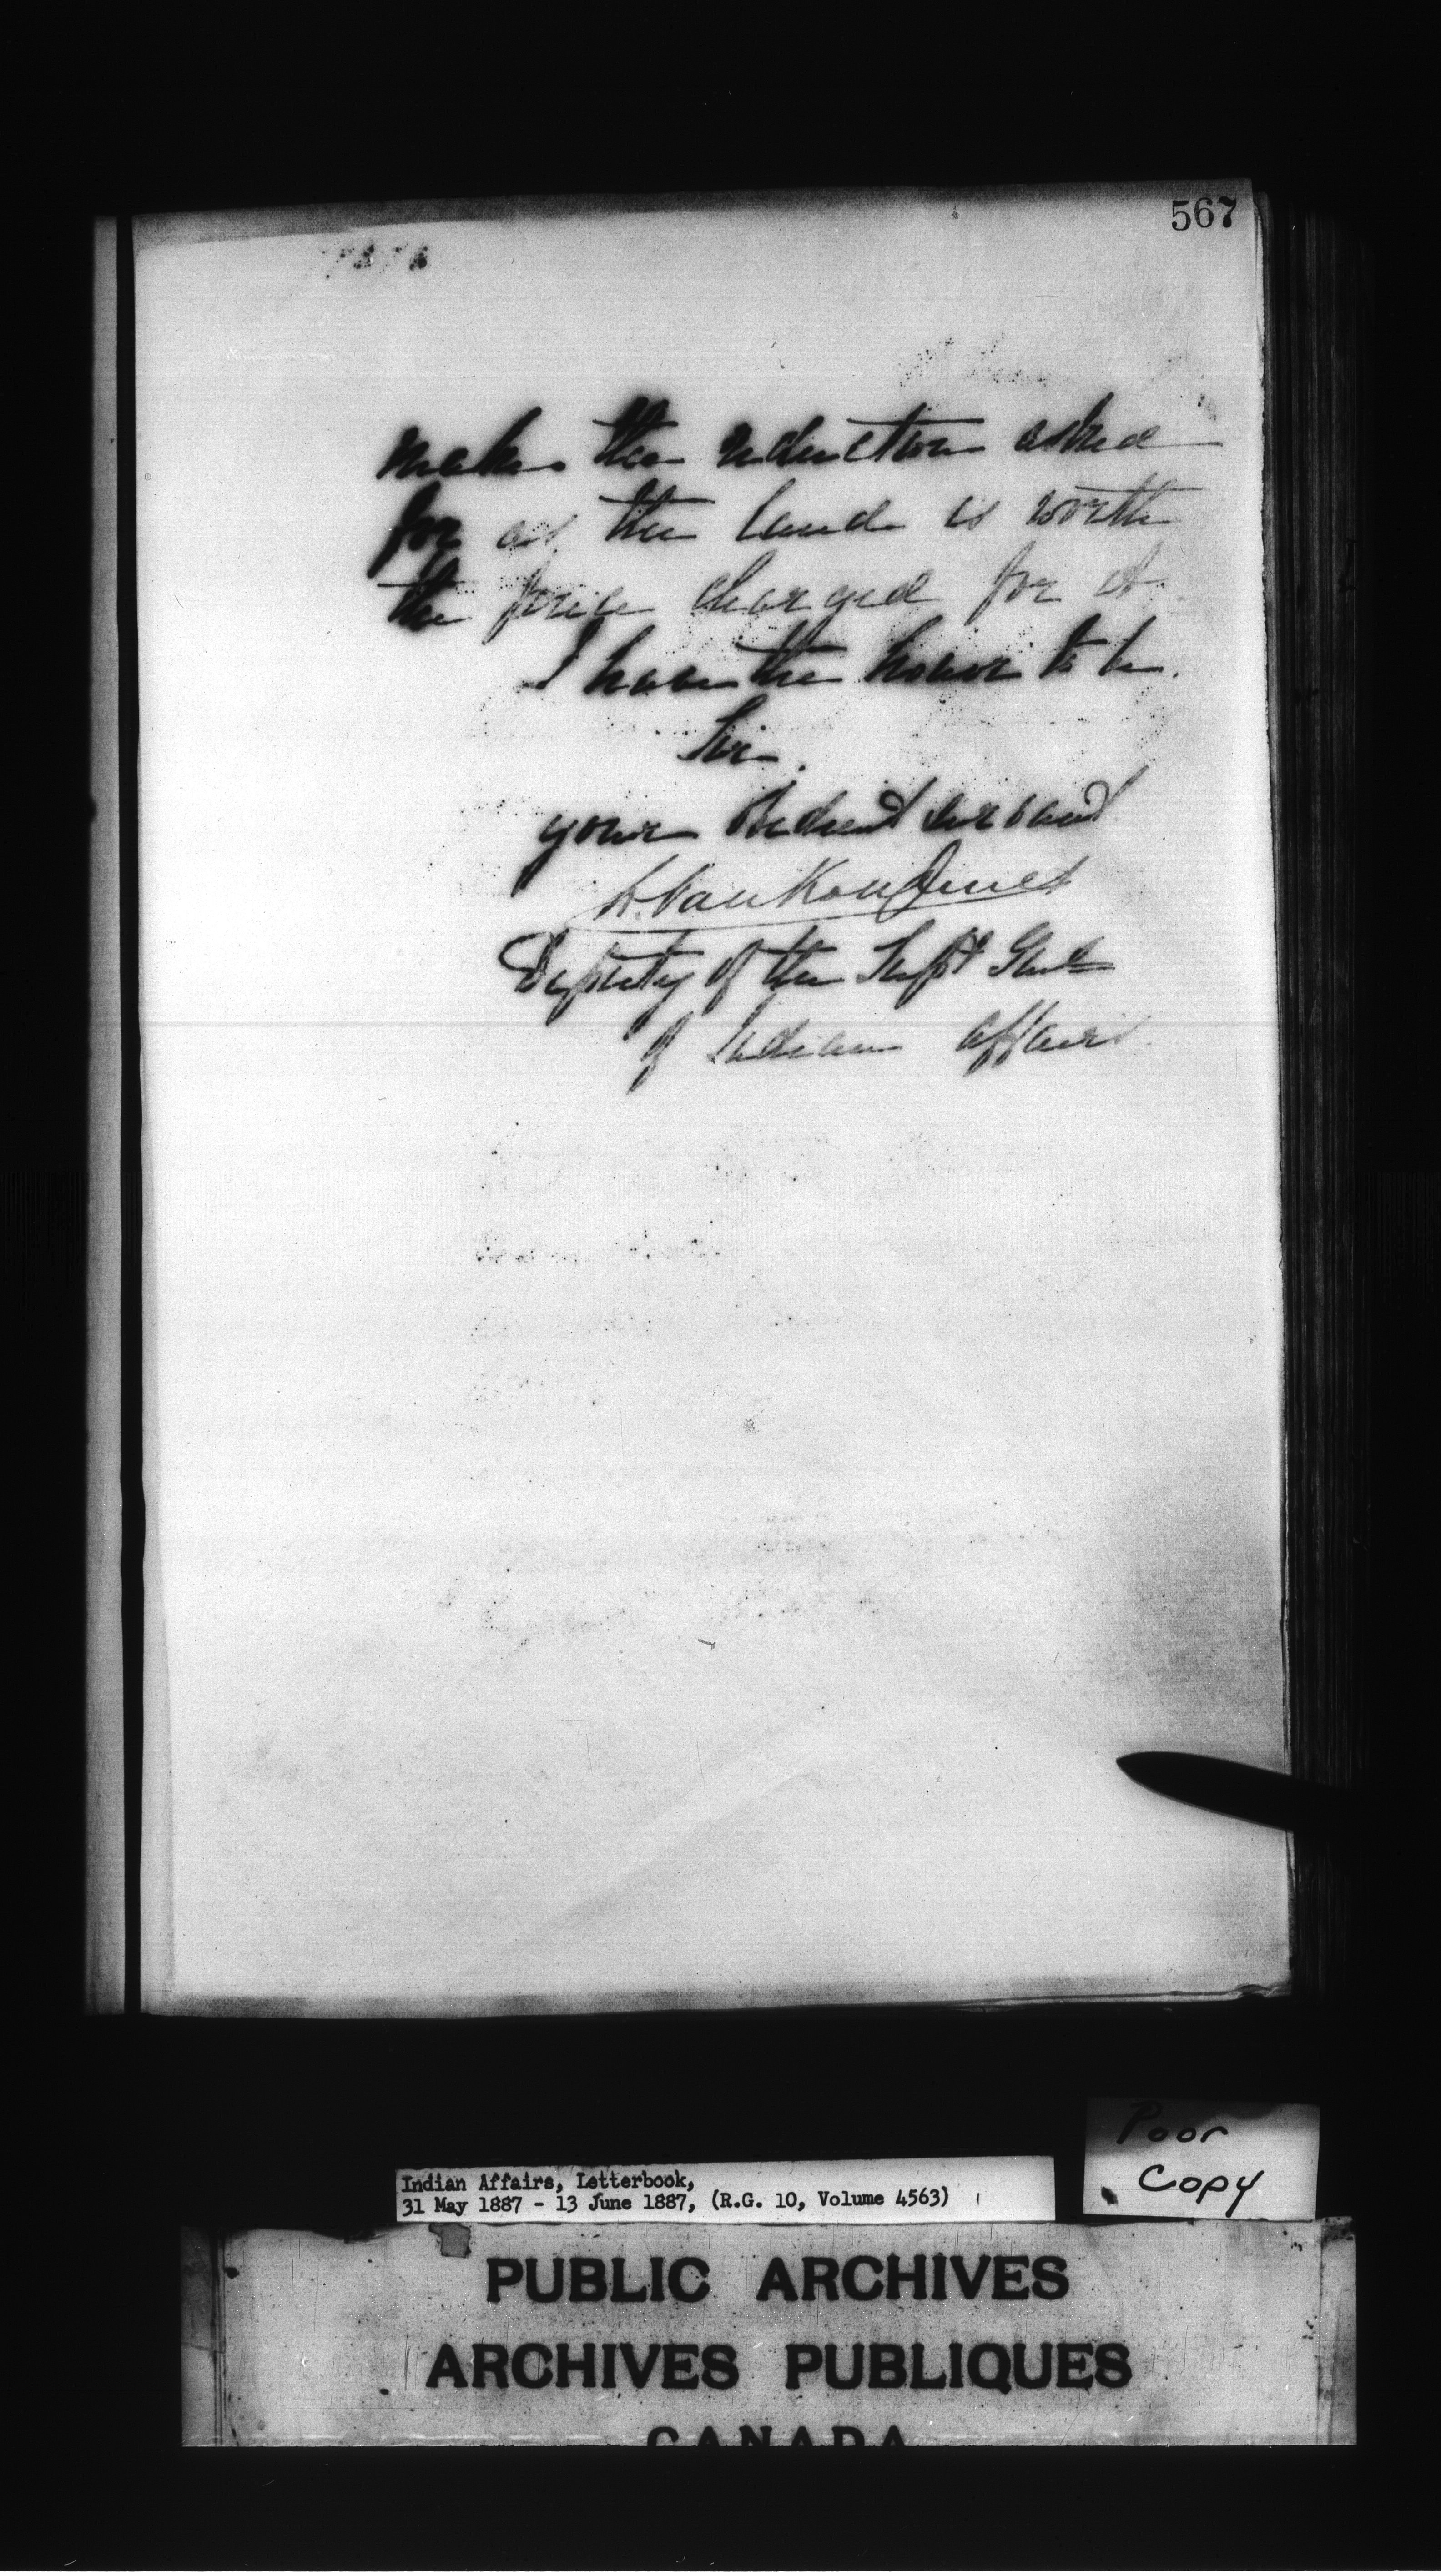 567
make the reduction asked
for as the land is worth
the price charged for it
I have the honor to be.
Sir.
your obedient servant
L. VanKoughnet
Deputy of the Supt Genl
of Indian Affairs.
Poor
Copy
Indian Affairs, Letterbook,
31 May 1887 - 13 June 1887, (R.G. 10, Volume 4563)
PUBLIC ARCHIVES
ARCHIVES PUBLIQUES
CANADA